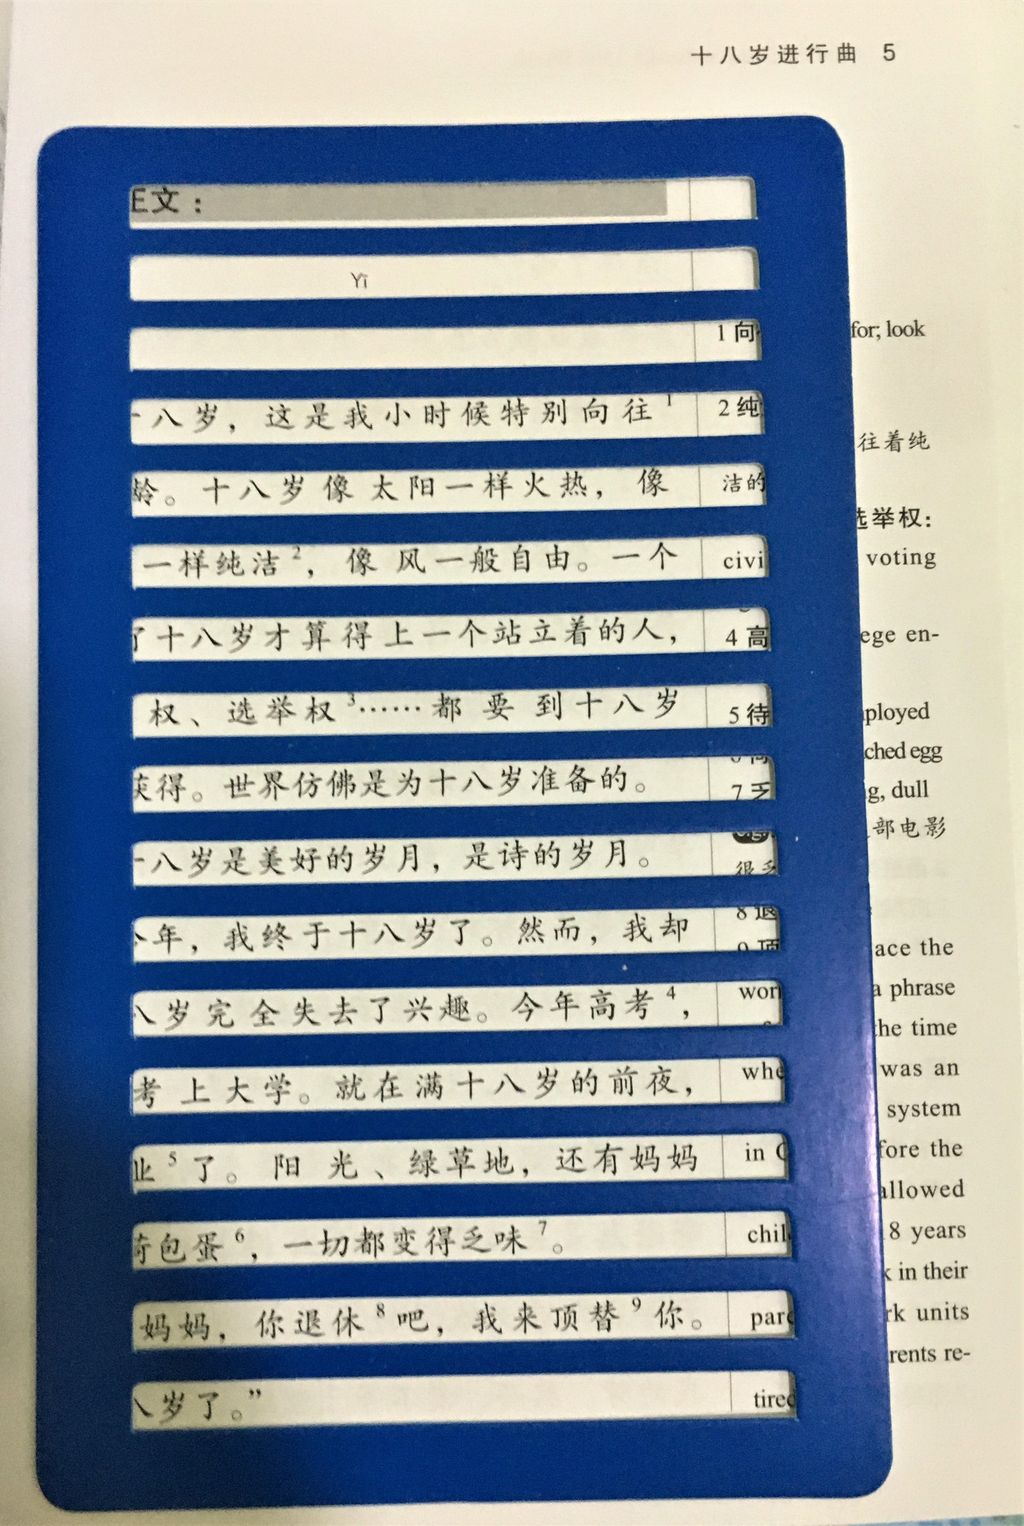 十八岁进行曲 5
正文：
Yī
1 向 for; look
八岁，这是我小时候特别向往1 2 纯
往着纯
龄。十八岁像太阳一样火热，像 洁的
选举权：
一样纯洁2，像风一般自由。一个 civi voting
了十八岁才算得上一个站立着的人， 4 高 ege en-
权、选举权3……都要到十八岁 5 待 ployed
ched egg
获得。世界仿佛是为十八岁准备的。 7 乏 g, dull
部电影
八岁是美好的岁月，是诗的岁月。 很乏
8 退
年，我终于十八岁了。然而，我却 9 顶 ace the
八岁完全失去了兴趣。今年高考4， wor a phrase
the time
考上大学。就在满十八岁的前夜， whe was an
system
业5了。阳光、绿草地，还有妈妈 in fore the
allowed
荷包蛋6，一切都变得乏味7。 chil 8 years
k in their
妈妈，你退休8吧，我来顶替9你。 pare rk units
rents re-
八岁了。” tired